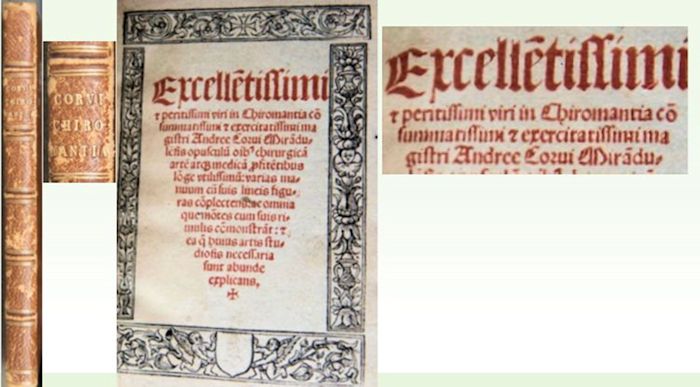 CORVI
CHIRO
CORVI
CHIRO
MANTIA
Excellētiſſimi
⁊ peritiſſimi viri in Chiromantia cō
ſummatiſſimi ⁊ exercitatiſſimi ma
giſtri Andree Corui Mirādu-
lēſis opuſculū chirurgicā
artē medicā
lōge vtiliſſimū: varias ma-
nuum cū ſuis lineis figu-
ras cōplectens: ac omnia
que mōtes cum ſuis ri-
mulis cōmonſtrāt: ⁊
ea q̄ huius artis ſtu-
dioſis neceſſaria
ſunt abunde
explicans,
Excellētiſſimi
⁊ peritiſſimi viri in Chiromantia cō
ſummatiſſimi ⁊ exercitatiſſimi ma
giſtri Andree Corui Mirādu-